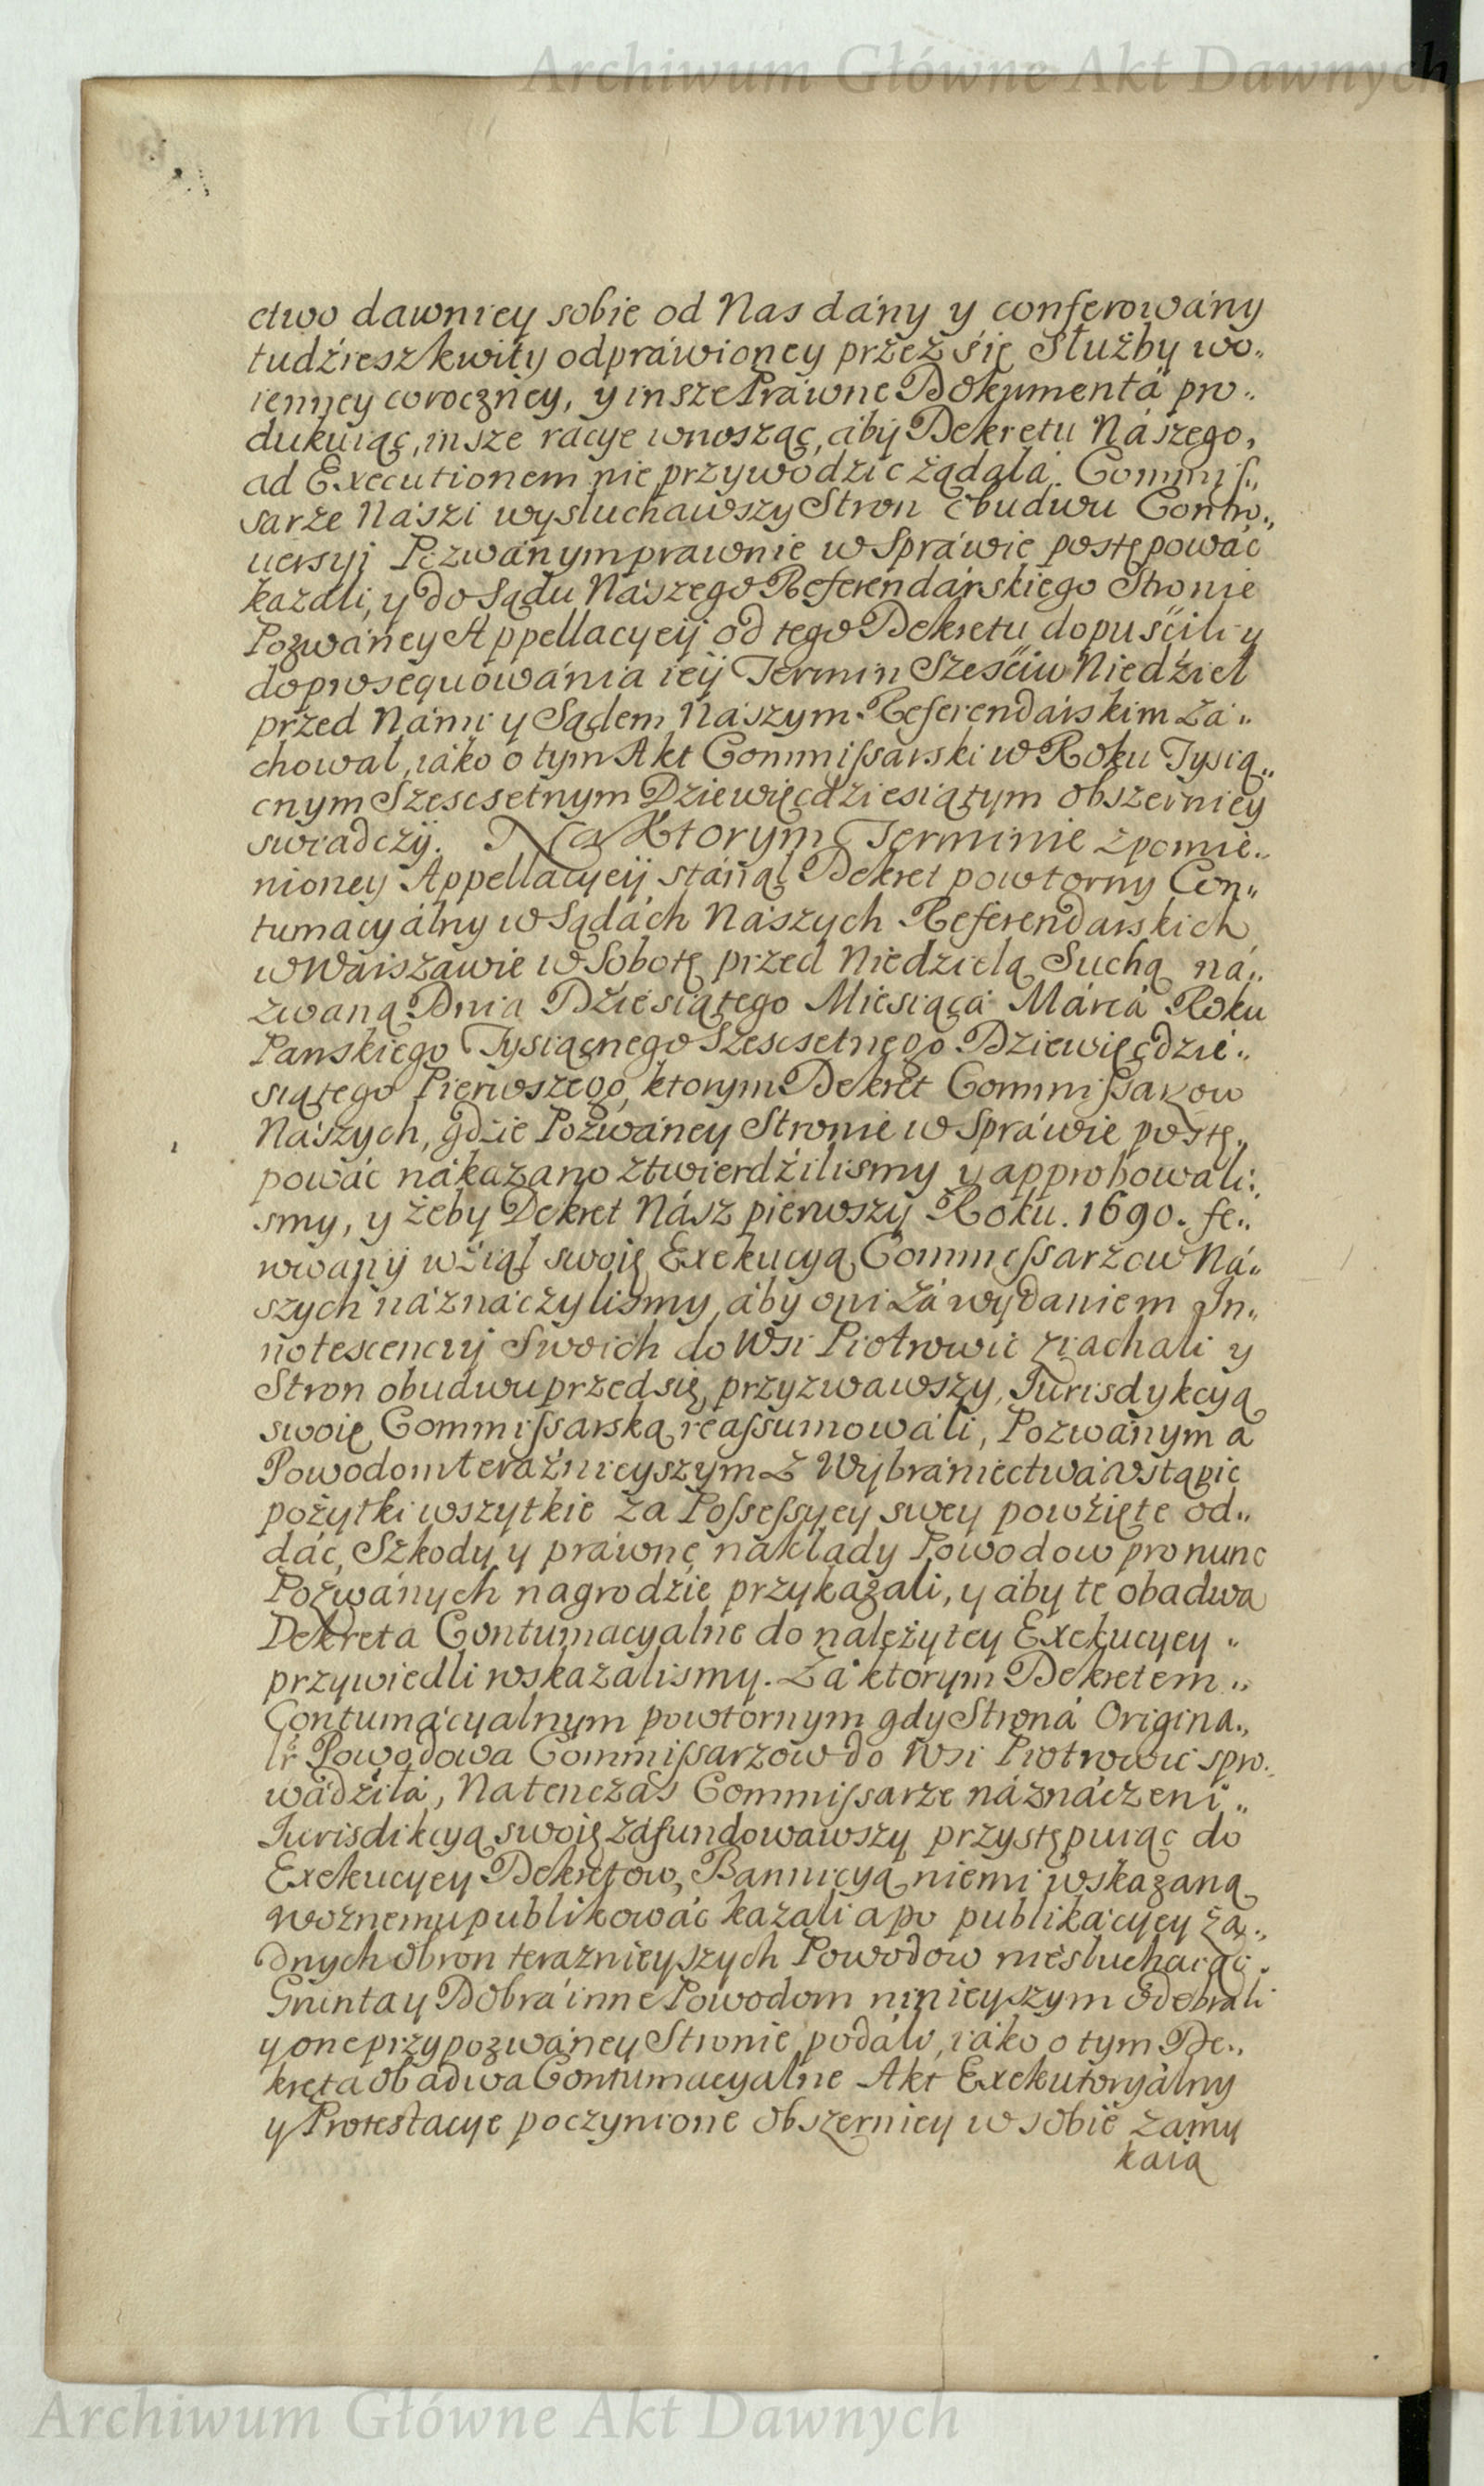 Archiwum Główne Akt Dawnych
ctwo dawniey sobie od Nas dány y conferowány
tudźiesz kwity odpráwioney przez się Służby wo„
ienney coroczney, y insze Práwne Dokumentá pro„
dukuiąc, insze racye wnosząc, áby Dekretu Nászego,
ad Executionem nie przywodzić żądálá. Commis„
sarze Nászi wysłuchawszy Stron obudwu Contro„
uersyi Pozwánym prawnie w Spráwie postępowáć
kazáli, y do Sądu Nászego Referendárskiego Stronie
Pozwáney Appellacyeij od tego Dekretu dopuśćili y
do prosequowánia ieij Termin Sześćiu Niedźiel
przed Námi y Sądem Nászym Referendárskim zá„
chował, iáko o tym Akt Commissarski w Roku Tysią„
cnym Szescsetnym Dziewięcdziesiątym obszerniey
swiadczy. Na Ktorym Terminie z pomie„
nioney Appellacyeij stánął Dekret powtorny Con„
tumacyálny w Sądách Nászych Referendarskich
w Wárszawie w Sobotę przed Niedzielą Suchą ná„
zwaną Dnia Dźiesiątego Miesiącá Márcá Roku
Panskiego Tysiącnego Szescsetnego Dziewięcdzie„
siątego Pierwszego, ktorym Dekret Commissarzow
Nászych, gdźie Pozwáney Stronie w Spráwie postę„
powáć nákazano ztwierdźilismy y approbowali„
smy, y żeby Dekret Nász pierwszy Roku. 1690. fe„
rowány wźiął swoię Exekucyą Commissarzow Ná„
szych náznáczylismy, áby oni zá wydaniem In„
notescencyi Swoich do Wsi Piotrowic ziachali y
Stron obudwu przed się przyzwawszy, Jurisdykcyą
swoię Commissarską reassumowáli, Pozwánym á
Powodom teráźnieyszym z Wybrániectwá Vstąpić
pożytki wszytkie zá Possessyey swey powźięte od„
dáć, Szkody y práwne nakłady Powodow pro nunc
Pozwánych nagrodzić przykazali, y áby te obadwa
Dekreta Contumacyalne do należytey Exekucyey „
przywiedli wskazálismy. Zá ktorym Dekretem „
Contumácyalnym powtornym gdy Stroná Origina„
lr Powodowa Commissarzow do Wsi Piotrowic spro„
wádźiłá, Natenczas Commissarze náznáczeni „
Jurisdikcyą swoię záfundowawszy przystępuiąc do
Exekucyey Dekretow, Bannicyą niemi wskazaną
woznemu publikowáć kazáli a po publikácyey żą„
dnych obron teraznieyszych Powodow niesłuchaiąc „
Grunta y Dobrá inne Powodom ninieyszym odebráli
y one przypozwáney Stronie podáli, iáko o tym De„
kreta obadwa Contumacyalne Akt Exekutoryálny
y Protestacye poczynione obszerniey w sobie zámy
kaią
Archiwum Główne Akt Dawnych